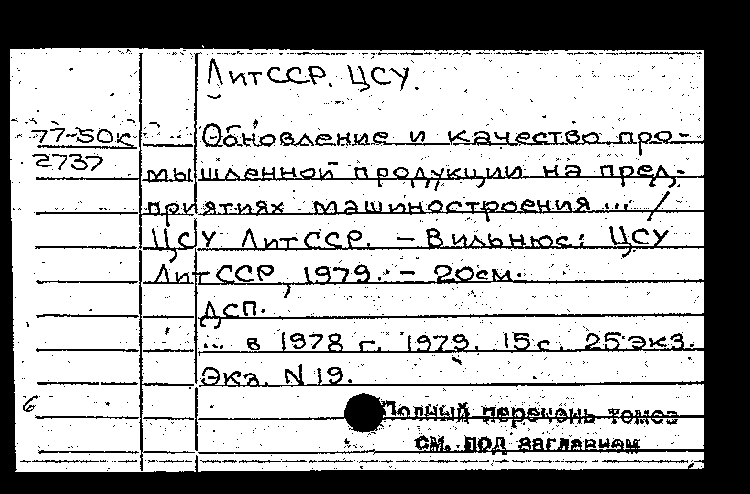 ЛитССР. ЦСУ.
77-50к Обновление и качество про-
2737 мышленной продукции на пред-
приятиях машиностроения ... /
ЦСУ ЛитССР. – Вильнюс: ЦСУ
ЛитССР, 1979. – 20см.
ДСП.
... в 1978 г. 1979. 15с. 25экз.
Экз. N 19.
б Полный перечень томов
см. под заглавием